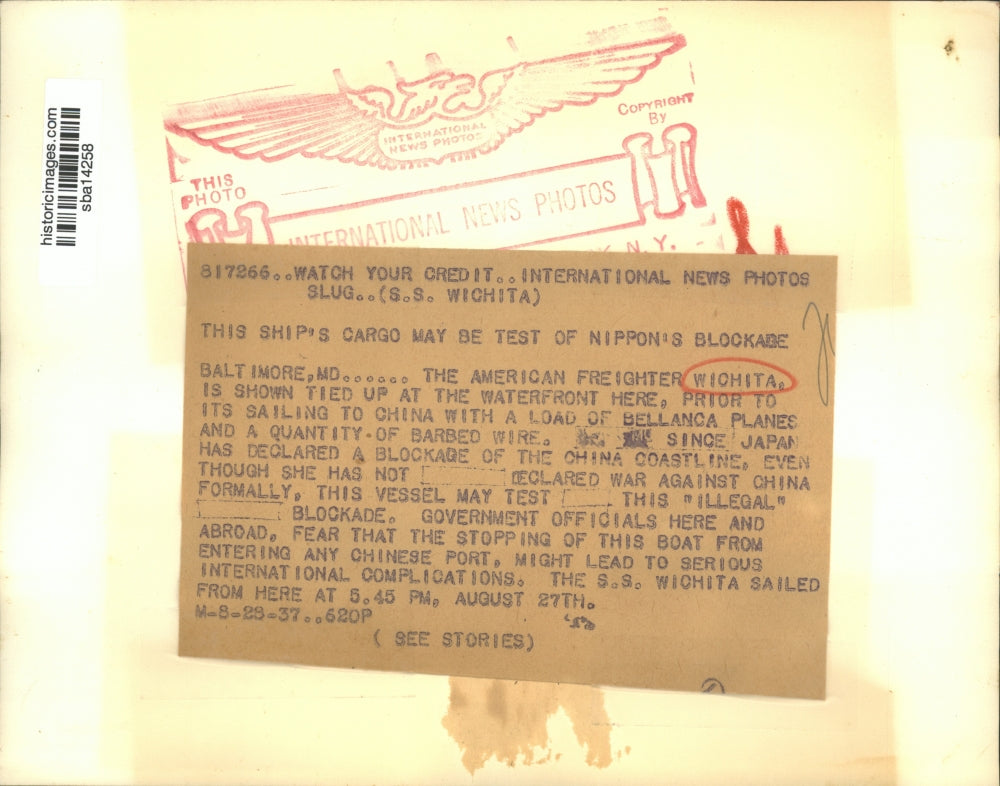 historicimages.com
sba14258
INTERNATIONAL
NEWS PHOTOS
COPYRIGHT
By
THIS
PHOTO
INTERNATIONAL NEWS PHOTOS
N.Y.
817266..WATCH YOUR CREDIT..INTERNATIONAL NEWS PHOTOS
SLUG..(S.S. WICHITA)
THIS SHIP'S CARGO MAY BE TEST OF NIPPON'S BLOCKADE
BALTIMORE,MD...... THE AMERICAN FREIGHTER WICHITA,
IS SHOWN TIED UP AT THE WATERFRONT HERE, PRIOR TO
ITS SAILING TO CHINA WITH A LOAD OF BELLANCA PLANES
AND A QUANTITY OF BARBED WIRE. SINCE JAPAN
HAS DECLARED A BLOCKAGE OF THE CHINA COASTLINE, EVEN
THOUGH SHE HAS NOT DECLARED WAR AGAINST CHINA
FORMALLY, THIS VESSEL MAY TEST THIS "ILLEGAL"
BLOCKADE. GOVERNMENT OFFICIALS HERE AND
ABROAD, FEAR THAT THE STOPPING OF THIS BOAT FROM
ENTERING ANY CHINESE PORT, MIGHT LEAD TO SERIOUS
INTERNATIONAL COMPLICATIONS. THE S.S. WICHITA SAILED
FROM HERE AT 5.45 PM, AUGUST 27TH.
M-8-28-37..620P
( SEE STORIES)